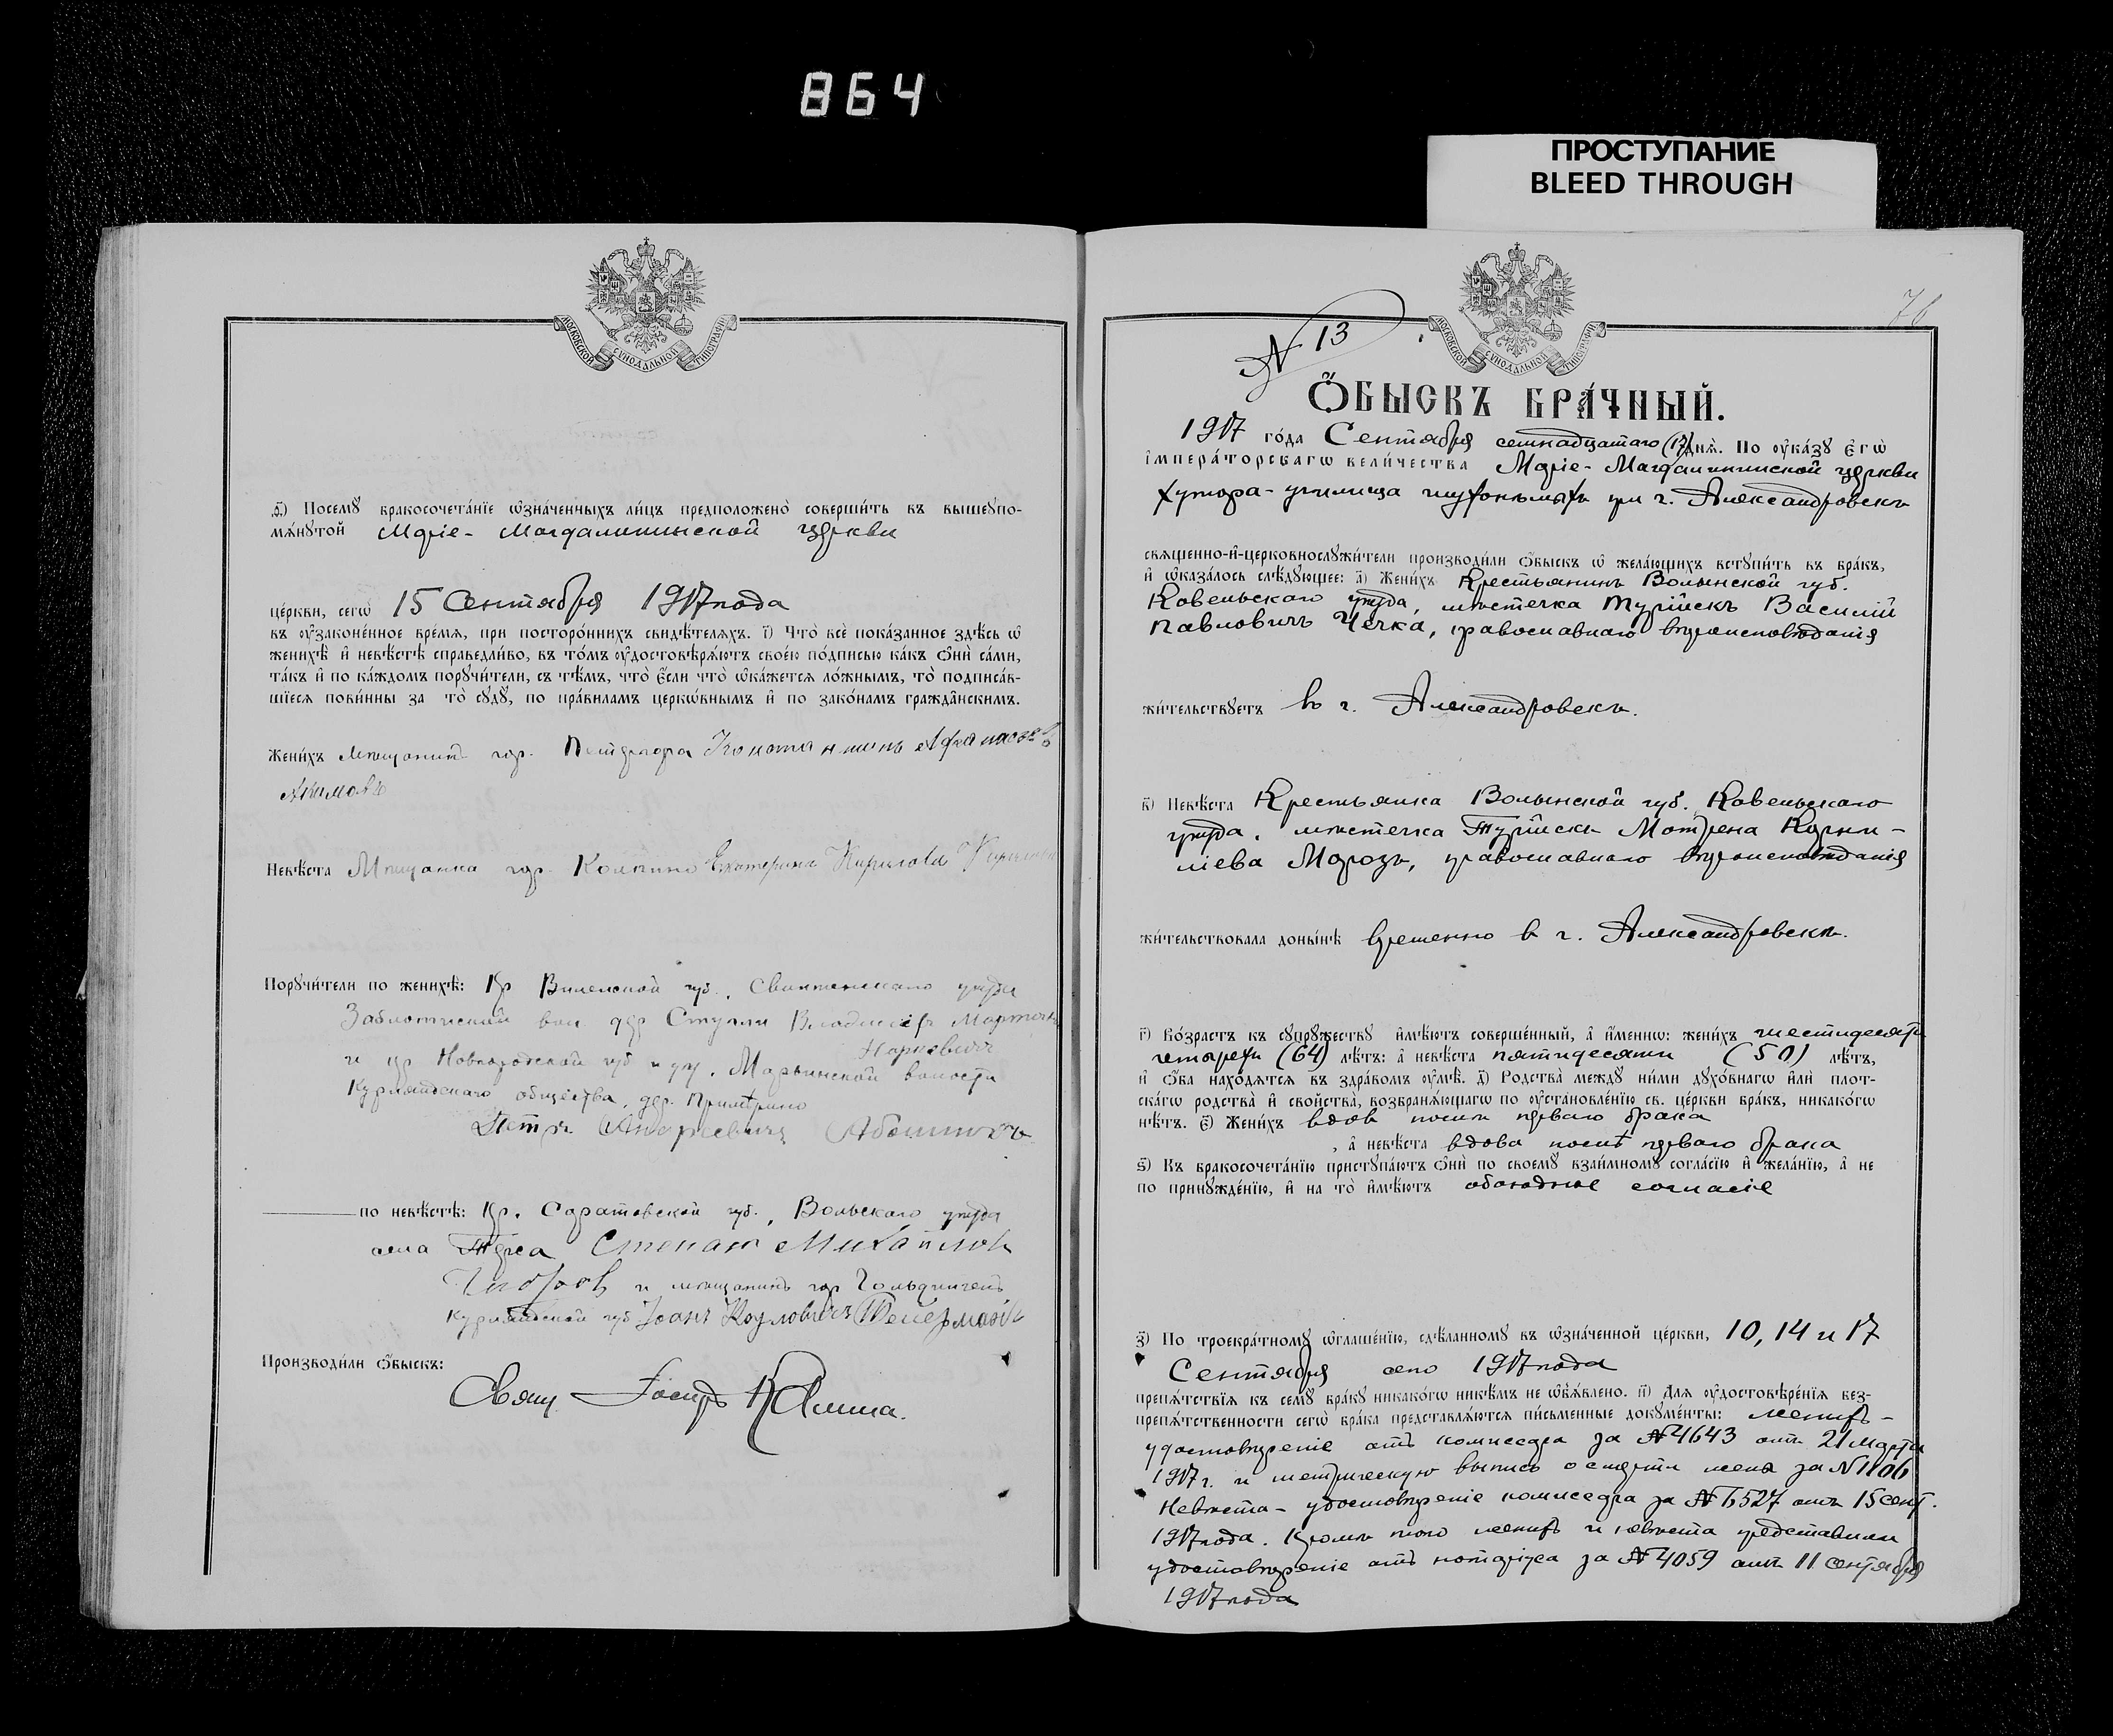 864
ПРОСТУПАНИЕ
BLEED THROUGH
МОСКОВСКОЙ СѴНОДАЛЬНОЙ ТИПОГРАФІИ
ѳ҃) Посемꙋ бракосочетаніе ѡзначенныхъ лицъ предположено совершить въ вышеупо-
мянꙋтой Маріе-Магдалининской церкви
церкви, сегѡ 15 Сентября 1917 года
въ оузаконенное время, при постороннихъ свидѣтеляхъ. і҃) Что все показанное здѣсь ѡ
женихѣ и невѣстѣ справедливо, въ томъ оудостовѣряютъ своею подписью какъ ѡни сами,
такъ и по каждомъ порꙋчители, съ тѣмъ, что если что ѡкажется ложнымъ, то подписав-
шіеся повинны за то сꙋдꙋ, по правиламъ церкѡвнымъ и по законамъ гражданскимъ.
Женихъ мѣщанинъ гор. Константинъ
Акимовъ
Невѣста Мѣщанка гор. Колпино Екатерина Кирилова
Порꙋчители по женихѣ: Кр Виленской губ., уѣзда
вол. дер Владиславъ
и кр Новгородской губ и уѣз. Марьинской волости
общества, дер.
Петръ Андреевичъ
по невѣстѣ: Кр. Саратовской губ., Вольскаго уѣзда
села Терса Степанъ Михайловъ
и мѣщанинъ гор Гольдингенъ
Курляндской губ Іоанъ
Производили ѡбыскъ:
Свящ. Іосифъ
76
№ 13
МОСКОВСКОЙ СѴНОДАЛЬНОЙ ТИПОГРАФІИ
ѠБЫСКЪ БРАЧНЫЙ.
1917 года Сентября семнадцатаго (17) дня. По оуказꙋ Егѡ
Императорскагѡ величества Маріе-Магдалининской церкви
Хутора-училища глухонѣмыхъ при г. Александровскѣ
священно-и-церковнослꙋжители производили ѡбыскъ ѡ желающихъ встꙋпить въ бракъ,
и ѡказалось слѣдꙋющее: а҃) Женихъ Крестьянинъ Волынской губ.
Ковельскаго уѣзда, мѣстечка Турійскъ Василій
Павловичъ Чечка, православнаго вѣроисповѣданія
жительствꙋетъ въ г. Александровскѣ.
в҃) Невѣста Крестьянка Волынской губ. Ковельскаго
уѣзда, мѣстечка Турійскъ Мотрена Корни-
ліева Морозъ, православнаго вѣроисповѣданія
жительствовала донынѣ временно въ г. Александровскѣ.
г҃) Возрастъ къ сꙋпрꙋжествꙋ имѣютъ совершенный, а именнѡ: женихъ шестидесяти
четырехъ (64) лѣтъ: а невѣста пятидесяти (50) лѣтъ,
и ѡба находятся въ здравомъ оумѣ. д҃) Родства междꙋ ними дꙋховнагѡ или плот-
скагѡ родства и свойства, возбраняющагѡ по оустановленію св. церкви бракъ, никакогѡ
нѣтъ. є҃) Женихъ вдовъ послѣ перваго брака
, а невѣста вдова послѣ перваго брака
ѕ҃) Къ бракосочетанію пристꙋпаютъ ѡни по своемꙋ взаимномꙋ согласію и желанію, а не
по принꙋжденію, и на то имѣютъ обоюдное согласіе
з҃) По троекратномꙋ ѡглашенію, сдѣланномꙋ въ ѡзначенной церкви, 10, 14 и 17
Сентября сего 1917 года
препятствія къ семꙋ бракꙋ никакогѡ никѣмъ не ѡбъявлено. и҃) Для оудостовѣренія без-
препятственности сегѡ брака представляются письменные докꙋменты: женихъ -
удостовѣреніе отъ комиссара за № 4643 отъ 21 марта
1917 г. и метрическую выпись о смерти жены за № 1106
Невѣста - удостовѣреніе комиссара за № 6527 отъ 15 сент.
1917 года. Кромѣ того женихъ и невѣста представили
удостовѣреніе отъ нотаріуса за № 4059 отъ 11 сентября
1917 года